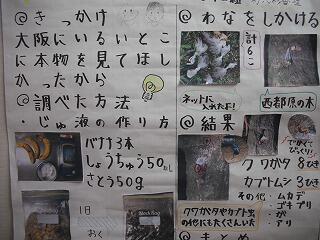 @きっかけ
大阪にいるいとこ
に本物を見てほし
かったから
@調べた方法
・じゅ液の作り方
バナナ3本
しょうちゅう50mL
さとう50g
1日
おく
@わなをしかける
計6こ
ネットに入れたよ!
西都原の木
@結果
でかくてびっくり!
クワガタ 8ひき
カブトムシ 3びき
その他・ムカデ
・ゴキブリ
・が
・アリ
クワガタやカブト虫
の他にもたくさんいた
@まとめ